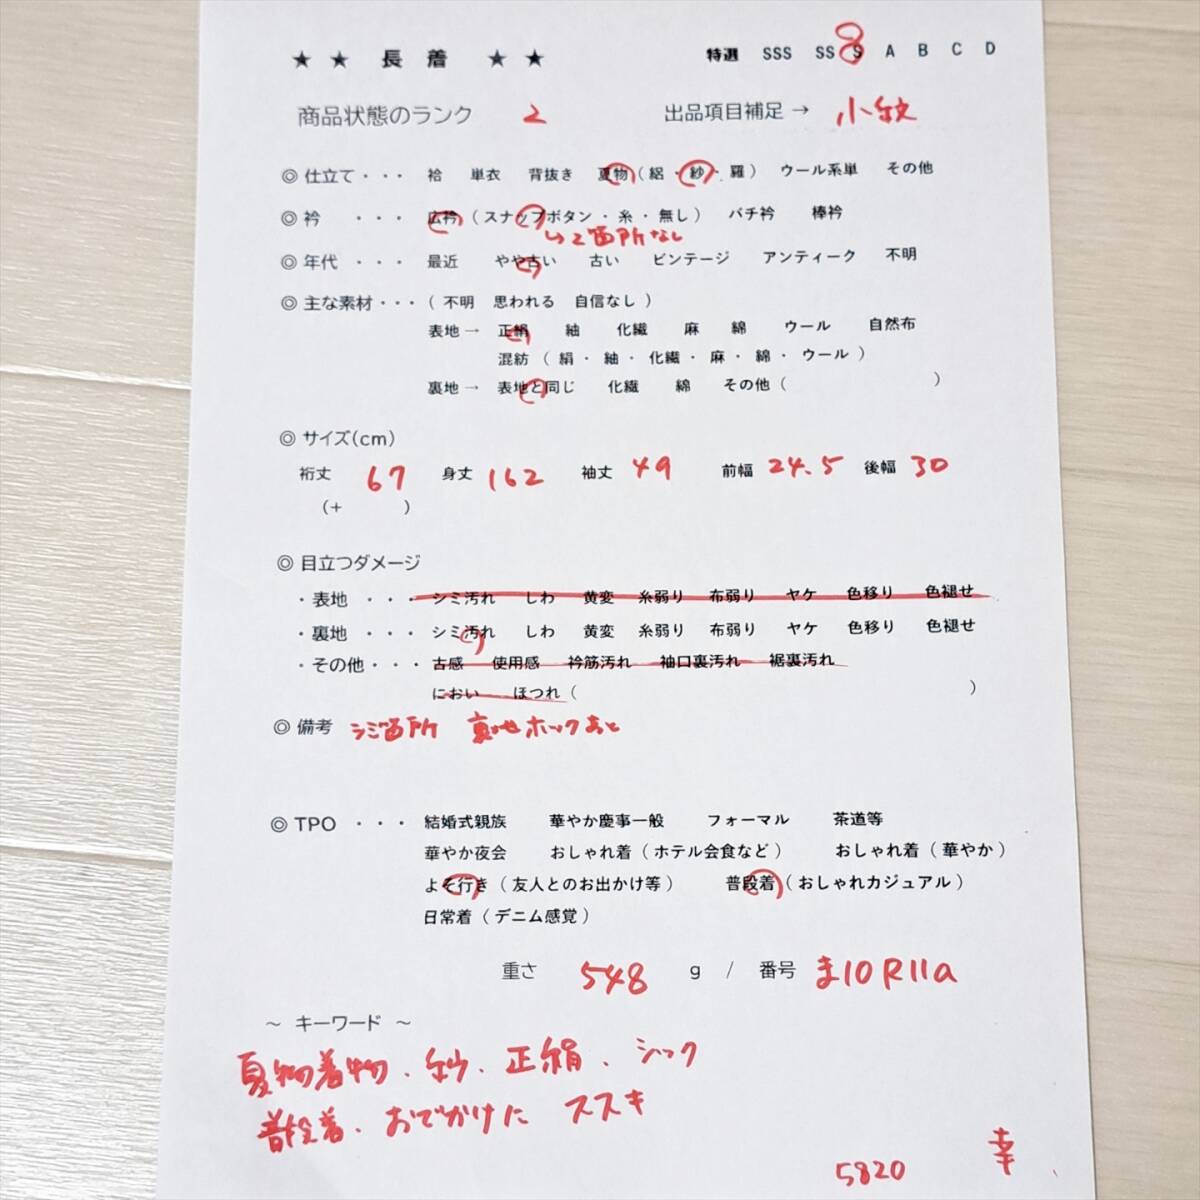 ★ ★ 長 着 ★ ★ 特選 SSS SS S A B C D
商品状態のランク 2 出品項目補足 → 小紋
◎ 仕立て ・・・ 袷 単衣 背抜き 夏物 ( 絽 ・ 紗 ・ 羅 ) ウール系単 その他
◎ 衿 ・・・ 広衿 ( スナップボタン ・ 糸 ・ 無し ) バチ衿 棒衿
↳ 2箇所なし
◎ 年代 ・・・ 最近 やや古い 古い ビンテージ アンティーク 不明
◎ 主な素材 ・・・ ( 不明 思われる 自信なし )
表地 → 正絹 紬 化繊 麻 綿 ウール 自然布
混紡 ( 絹 ・ 紬 ・ 化繊 ・ 麻 ・ 綿 ・ ウール )
裏地 → 表地と同じ 化繊 綿 その他 ( )
◎ サイズ(cm)
裄丈 67 身丈 162 袖丈 49 前幅 24.5 後幅 30
(+ )
◎ 目立つダメージ
・表地 ・・・ シミ汚れ しわ 黄変 糸弱り 布弱り ヤケ 色移り 色褪せ
・裏地 ・・・ シミ汚れ しわ 黄変 糸弱り 布弱り ヤケ 色移り 色褪せ
・その他 ・・・ 古感 使用感 衿筋汚れ 袖口裏汚れ 裾裏汚れ
におい ほつれ ( )
◎ 備考 箇所 裏地ホックあと
◎ TPO ・・・ 結婚式親族 華やか慶事一般 フォーマル 茶道等
華やか夜会 おしゃれ着 ( ホテル会食など ) おしゃれ着 ( 華やか )
よそ行き ( 友人とのお出かけ等 ) 普段着 ( おしゃれカジュアル )
日常着 ( デニム感覚 )
重さ 548 g / 番号 ま10R11a
～ キーワード ～
夏物着物、紗、正絹、シック
普段着、おでかけに ススキ
5820 幸